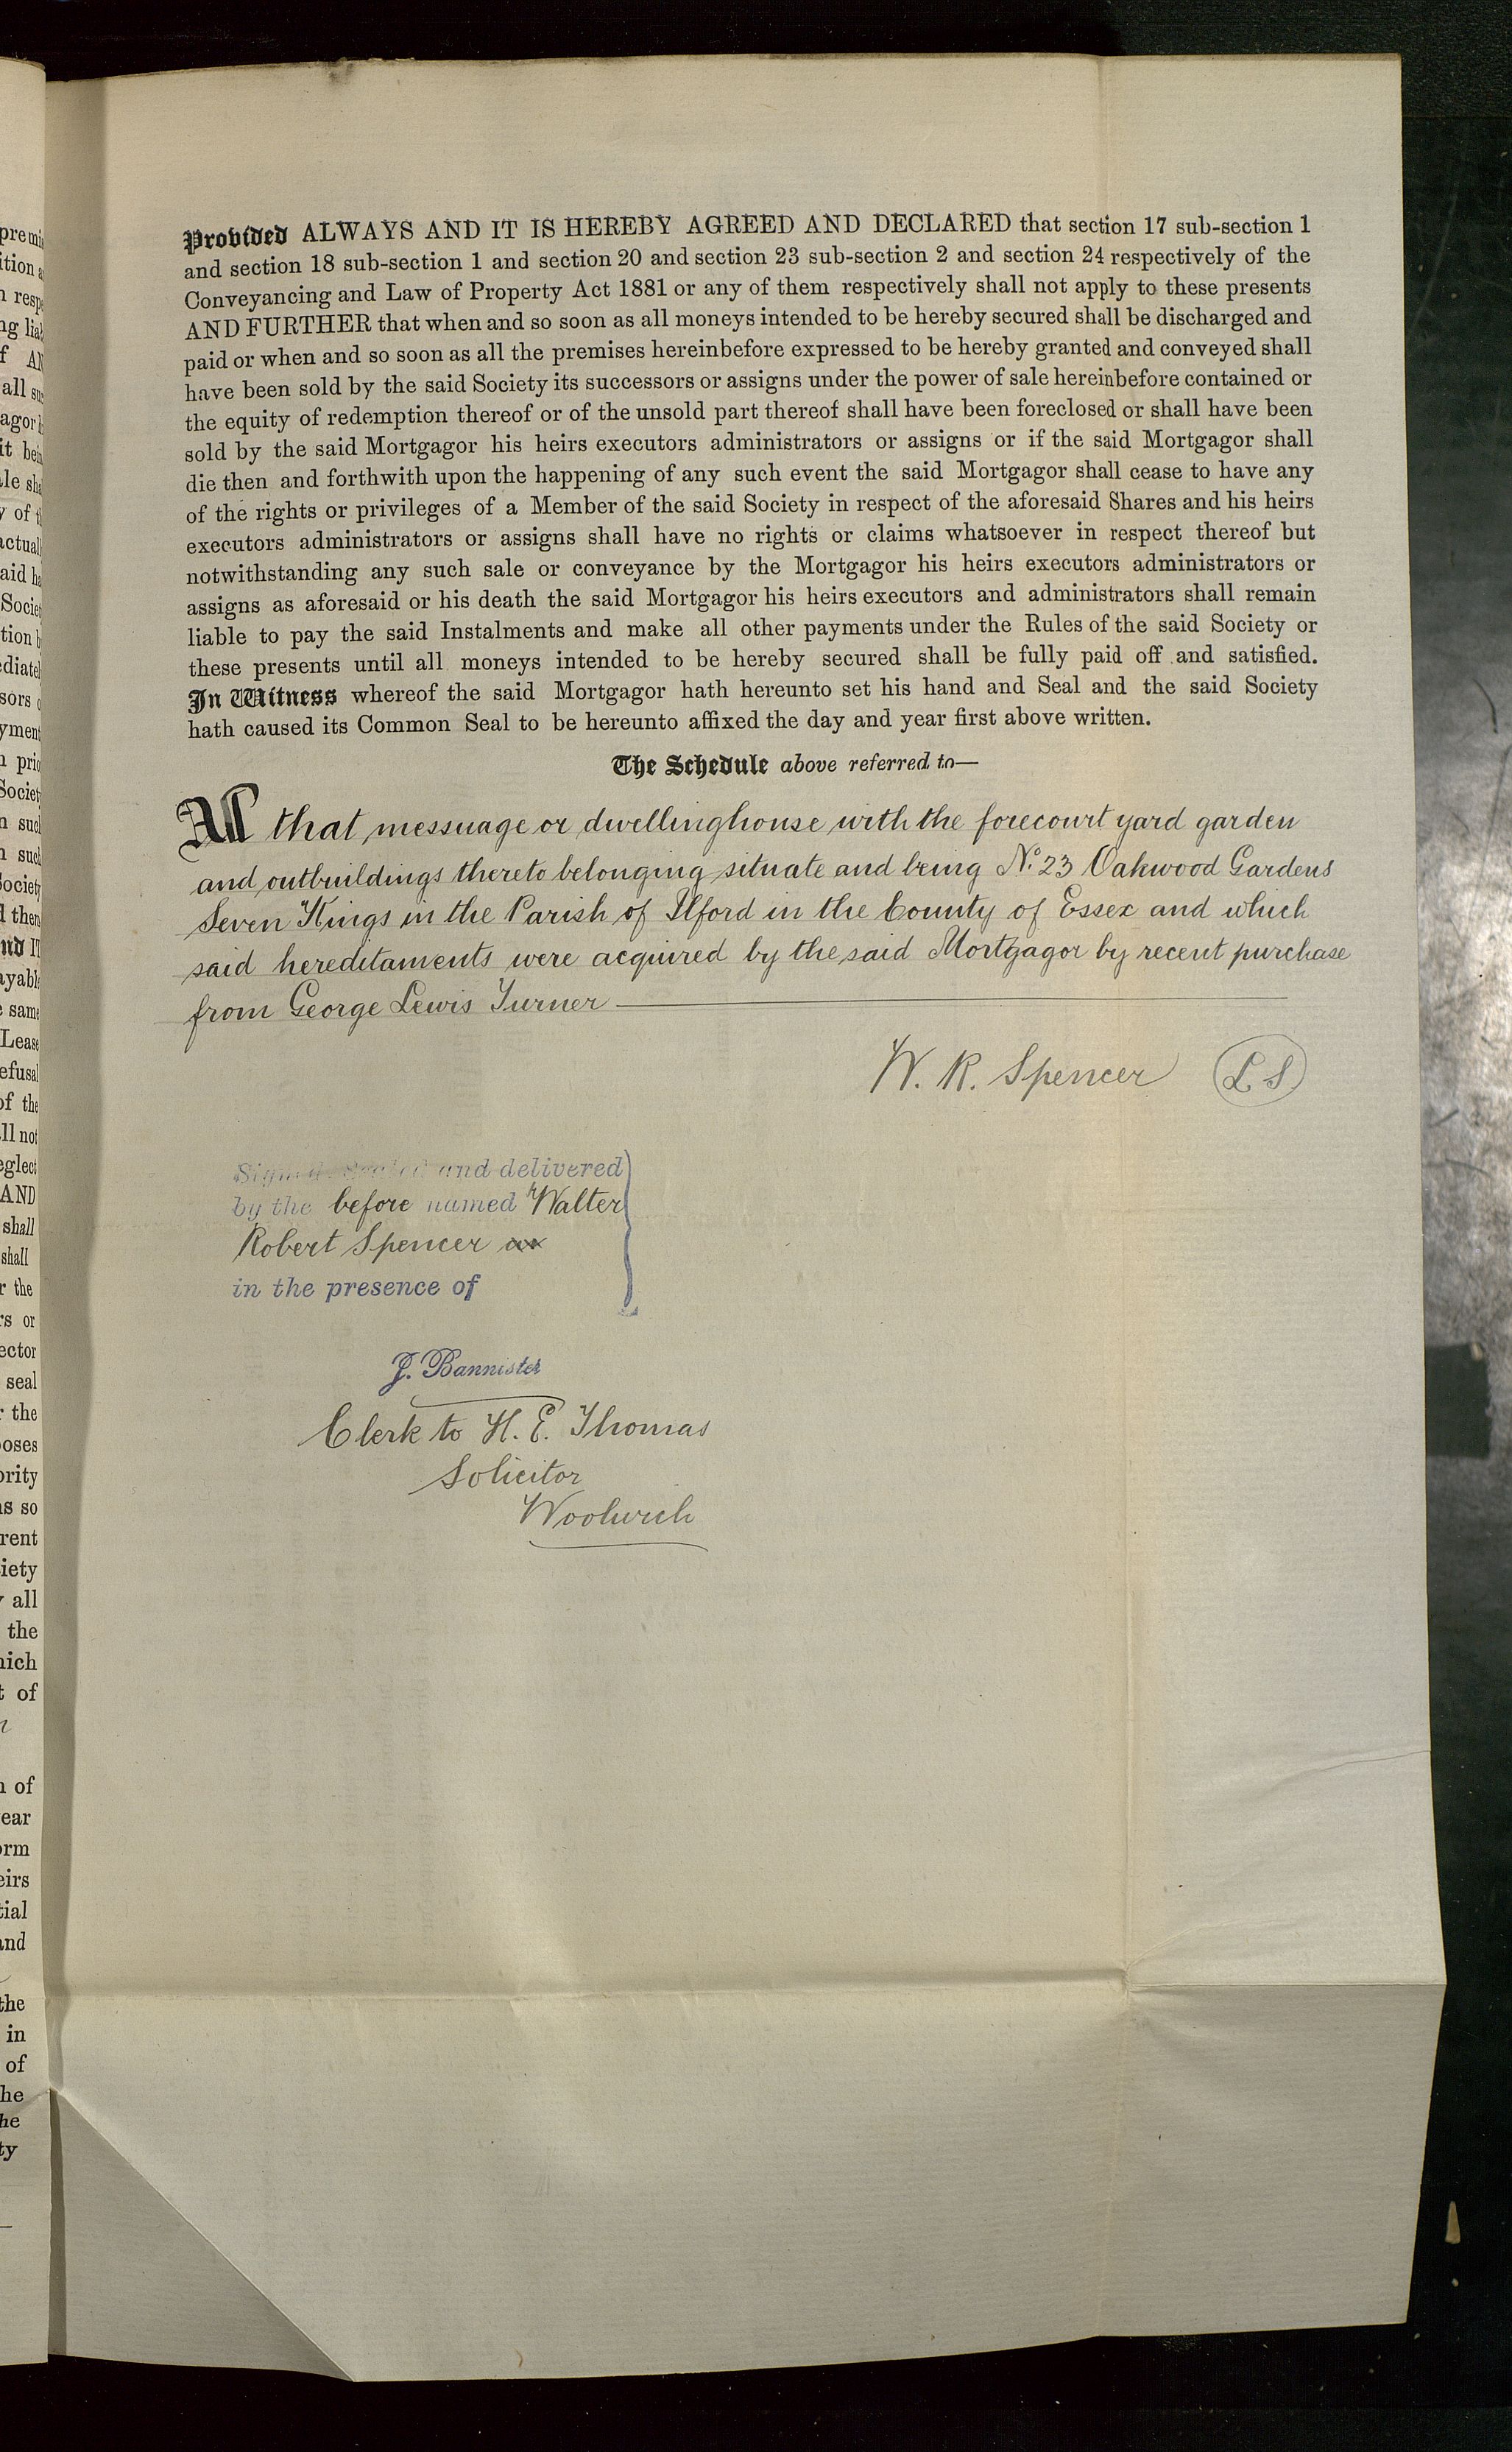 Provided ALWAYS AND IT IS HEREBY AGREED AND DECLARED that section 17 sub-section 1
and section 18 sub-section 1 and section 20 and section 23 sub-section 2 and section 24 respectively of the
Conveyancing and Law of Property Act 1881 or any of them respectively shall not apply to these presents
AND FURTHER that when and so soon as all moneys intended to be hereby secured shall be discharged and
paid or when and so soon as all the premises hereinbefore expressed to be hereby granted and conveyed shall
have been sold by the said Society its successors or assigns under the power of sale hereinbefore contained or
the equity of redemption thereof or of the unsold part thereof shall have been foreclosed or shall have been
sold by the said Mortgagor his heirs executors administrators or assigns or if the said Mortgagor shall
die then and forthwith upon the happening of any such event the said Mortgagor shall cease to have any
of the rights or privileges of a Member of the said Society in respect of the aforesaid Shares and his heirs
executors administrators or assigns shall have no rights or claims whatsoever in respect thereof but
notwithstanding any such sale or conveyance by the Mortgagor his heirs executors administrators or
assigns as aforesaid or his death the said Mortgagor his heirs executors and administrators shall remain
liable to pay the said Instalments and make all other payments under the Rules of the said Society or
these presents until all moneys intended to be hereby secured shall be fully paid off and satisfied.
In Witness whereof the said Mortgagor hath hereunto set his hand and Seal and the said Society
hath caused its Common Seal to be hereunto affixed the day and year first above written.
The Schedule above referred to—
All that messuage or dwellinghouse with the forecourt yard garden
and outbuildings thereto belonging situate and being No. 23 Oakwood Gardens
Seven Kings in the Parish of Ilford in the County of Essex and which
said hereditaments were acquired by the said Mortgagor by recent purchase
from George Lewis Turner
W. R. Spencer LS
Signed sealed and delivered
by the before named Walter
Robert Spencer
in the presence of
J. Bannister
Clerk to H. E. Thomas
Solicitor
Woolwich